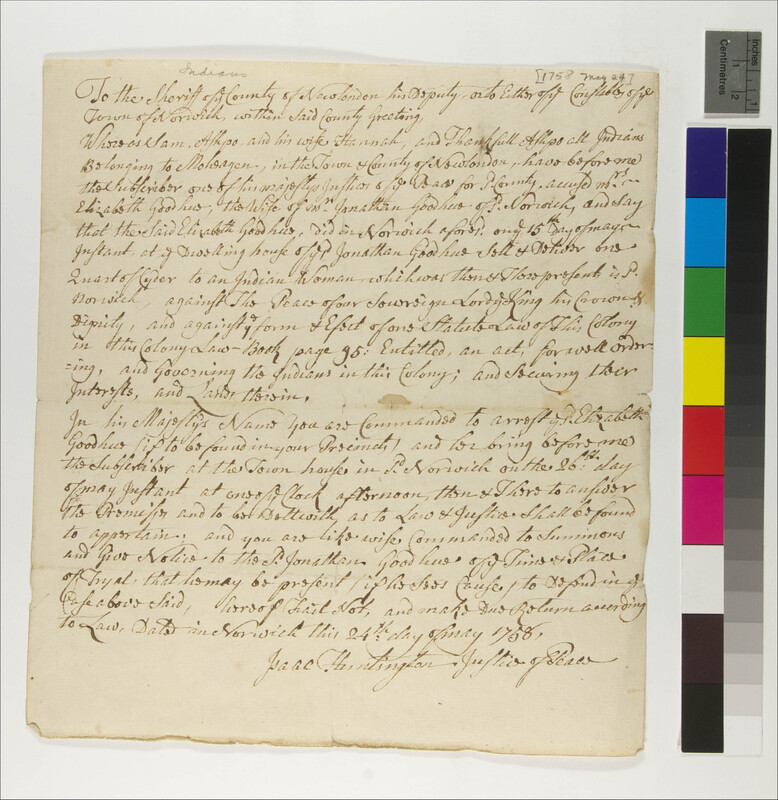 Indians
[1758 May 24]
To the Sheriff of ye County of Newlondon his Deputy, or to Either of ye Constables of ye
Town of Norwich, within Said County Greeting,
Whereas Sam Ashpo, and his wife Hannah, and Thankfull Ashpo all Indians
Belonging to Moheagen, in the Town & County of Newlondon, have before me
the Subscriber one of his majestys Justices of ye Peace for sd County, accused mrs
Elizabeth Goodhue, the Wife of mr Jonathan Goodhue of sd Norwich, and Say
that the Said Elizabeth Goodhue, did in Norwich aforesd on ye 15th Day of may
Instant at ye Dwelling house of sd Jonathan Goodhue Sell & Deliver one
Quart of Cyder to an Indian Woman which was then & There present in sd
Norwich, against The Peace of our Sovereign Lord ye King his Crown &
Dignity, and against ye form & Efect of one Statute Law of This Colony
in this Colony Law-Book page 95: Entitled, an act, for well order-
-ing, and Governing the Indians in this Colony; and Securing their
Interests, and Lands therein.
In his Majestys Name you are Commanded to arrest ye sd Elizabeth
Goodhue (if to be found in your Precincts) and her bring before me
the Subscriber at the Town house in sd Norwich on the 26th day
of may Instant at one of ye Clock afternoon, then & There to answer
the Premises and to be Deltwith, as to Law & Justice Shall be found
to appertain; and you are like wise Commanded to Summons
and Give Notice to the sd Jonathan Goodhue of ye Time & Place
of Tryal that he may be present (if he Sees Cause) to Defend in ye
Case above Said, hereof fail Not, and make Due Return according
to Law, Dated in Norwich this 24th day of may 1758,
Isaac Huntington Justice of Peace
Inches
1
Centimetres
1
2